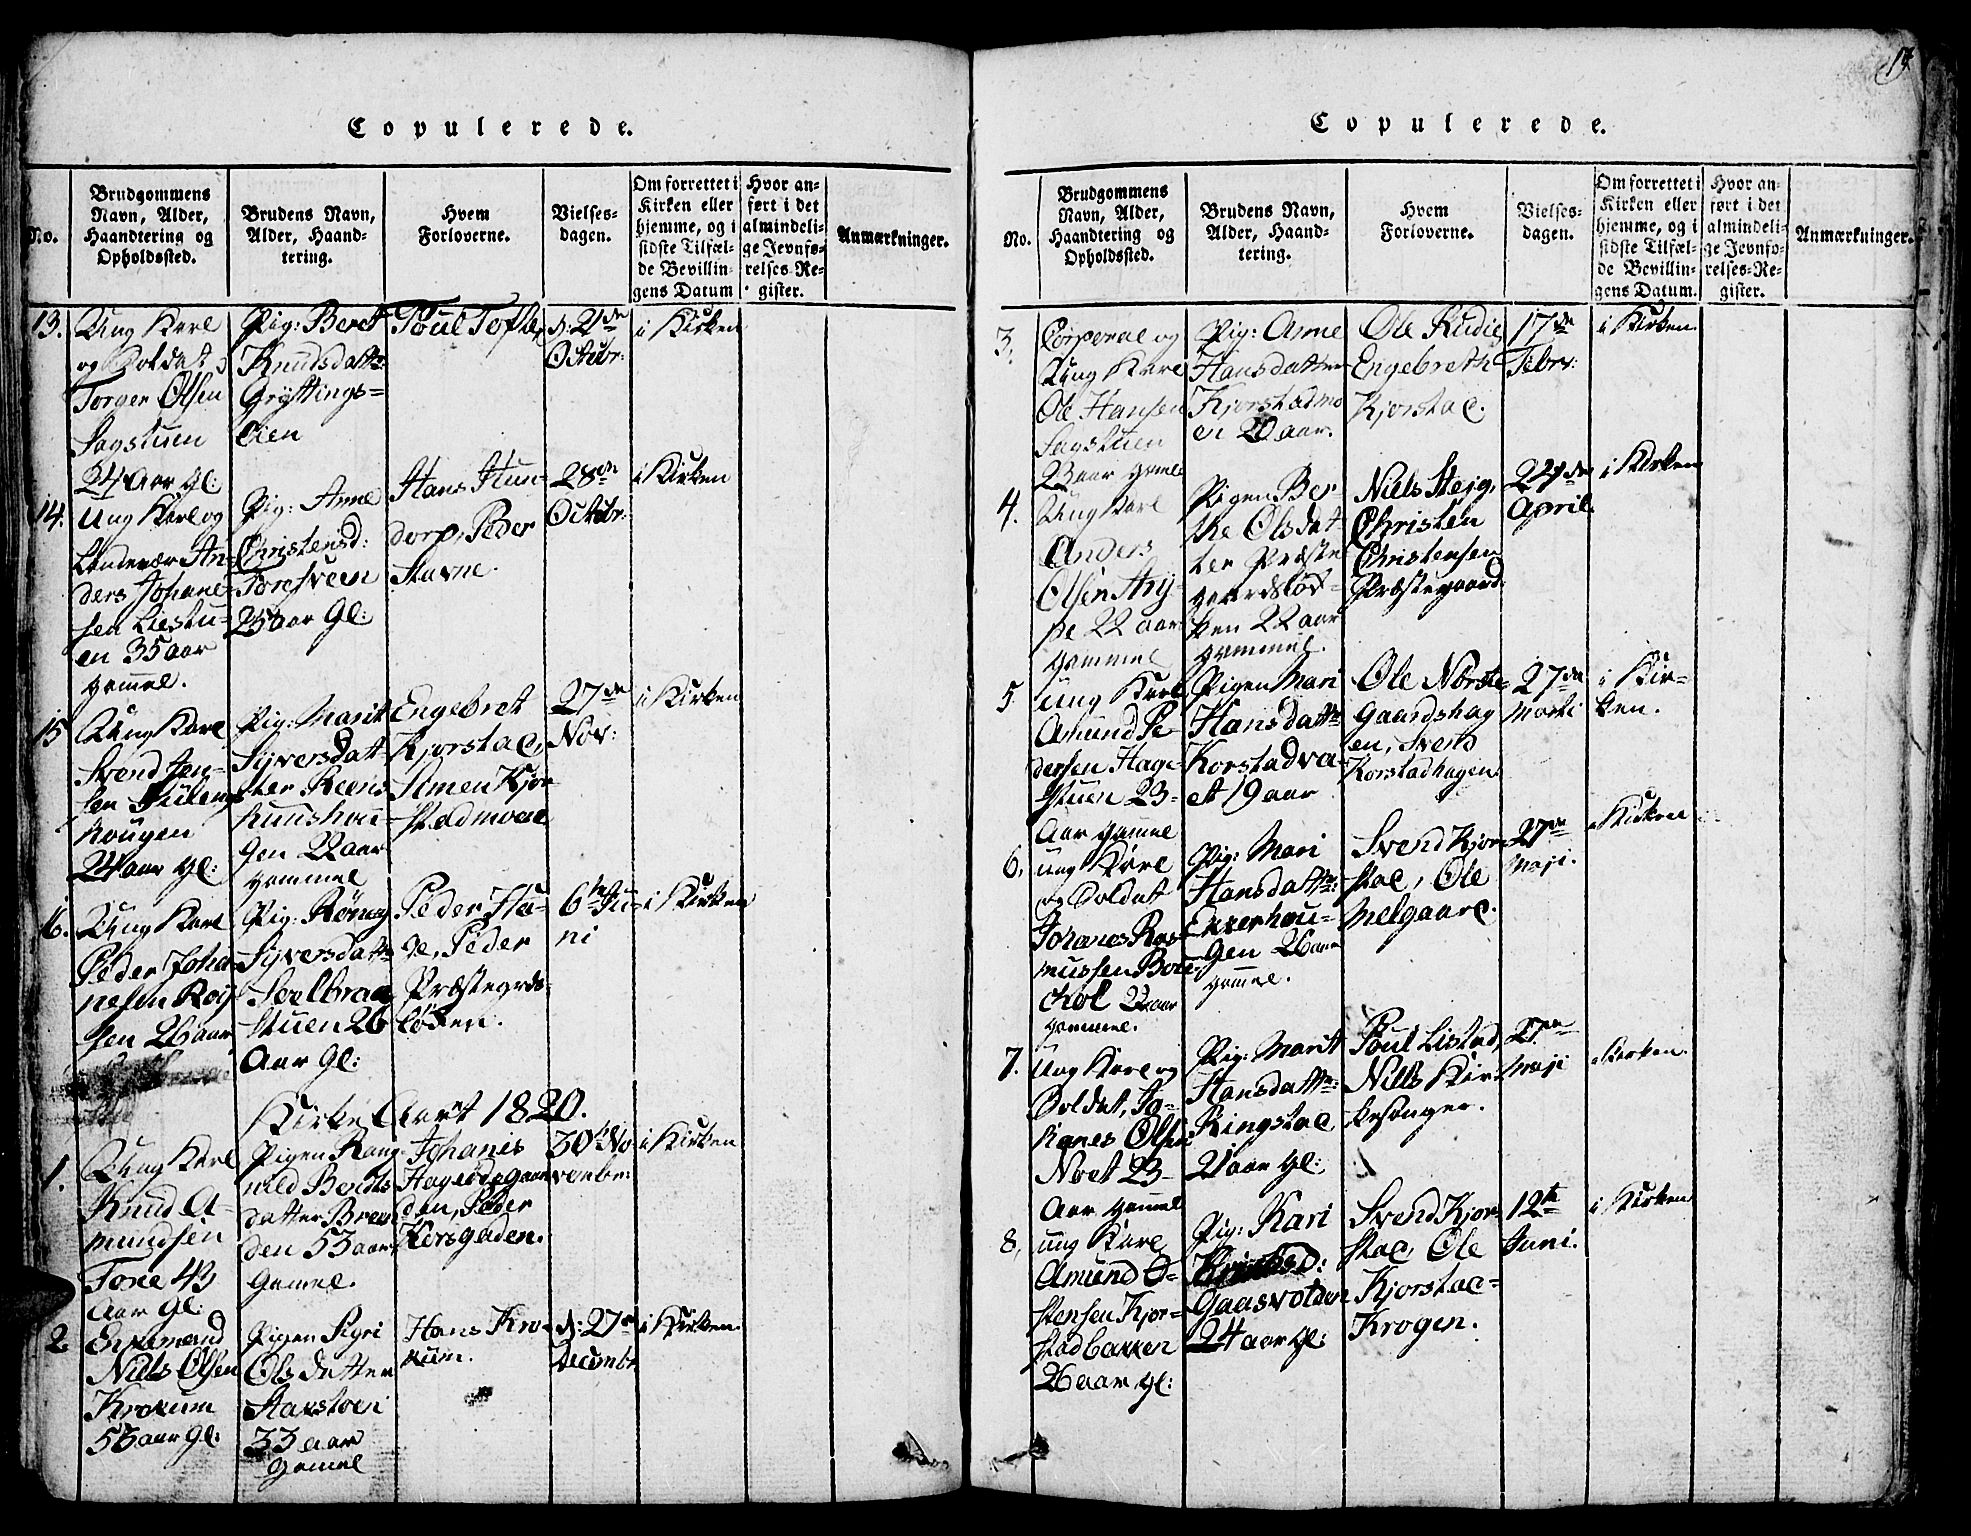 Copulerede.
No.
Brudgommens
Navn, Alder,
Haandtering og
Opholdssted.
Brudens Navn,
Alder, Haand-
tering.
Hvem
Forloverne.
Vielses-
dagen.
Om forrettet i
Kirken eller
hjemme, og i
sidste Tilfæl-
de Bevillin-
gens Datum
Hvor an-
ført i det
almindeli-
ge Jevnfø-
relses-Re-
gister.
Anmærkninger.
13.
Ung Karl
og Soldat
Torger Olsen
Sagstuen
24 Aar gl:
Pig: Beret
Knudsdatter
Gryttings=
Øien
Poul Tofte,
d: 21de
Octobr:
i Kirken
14.
Ung Karl og
Landevær An-
ders Johane-
sen Liestu-
en 35 aar
gamel.
Pig: Anne
Christensd:
Toresveen
25 aar Gl:
Hans Hun-
dorp, Peder
Stavne.
28de
Octobr:
i Kirken
15
Ung Karl
Svend Jen-
sen
Hougen
24 aar gl:
Pig: Marit
Syversdatt-
ter
gen 22 aar
gammel
Engebret
Kjorstad,
Simen Kjor-
stadmoen
27de
Nov:
i Kirken
16.
Ung Karl
Peder Joha-
nesen
sen 26 aar
Pig: Rønnog
Syversdatt
Sælbraa
stuen 26
Aar gl:
Peder Ha-
ge, Peder
Præstegrds-
løkken.
6te Ju-
ni
i Kirken
Kirke Aaret 1820.
1.
Ung Karl
Knud A-
mundsen
Tone 43
Aar gl:
Pigen Rang-
nild Bendts
datter Breen
den 53 aar
gamel.
Johanis
Hageødegaar
den, Peder
Korsgaden.
30te No-
vembr:
i Kirken
2.
Enkemand
Niels Olsen
Krokum
53 aar gl:
Pigen Sigri
Olsdatter
Stakstoen
33 aar
gamel
Hans Kro-
kum.
d: 27de
Decembr
i Kirken.
17
Copulerede.
No.
Brudgommens
Navn, Alder,
Haandtering og
Opholdssted.
Brudens Navn,
Alder, Haand-
tering.
Hvem
Forloverne.
Vielses-
dagen.
Om forrettet i
Kirken eller
hjemme, og i
sidste Tilfæl-
de Bevillin-
gens Datum.
Hvor an-
ført i det
almindeli-
ge Jevnfø-
relses-Re-
gister.
Anmærkninger.
3.
Corporal og
Ung Karl
Ole Hansen
Sagstuen
23 aar gamel
Pig: Anne
Hansdatter
Kjorstadmo
en 20 aar.
Ole Rudie,
Engebreth
Kjorstad.
17de
Febr:
i Kirken
4.
Ung Karl
Anders
Olsen Stry-
pe 22 aar
gammel
Pigen Ber-
the Olsdat
ter Præste
gaardsløk-
ken 22 aar
gammel.
Niels Steig,
Christen
Christensen
Præstegaard
24de
April
i Kirken
5
Ung Karl
Amund Pe
dersen Hage-
stuen 23-
Aar gamel
Pigen Mari
Hansdatter
Korstadva-
et 19 aar
Ole Nørste-
Gaardshag
en, Svend
Korstadhagen
27de
Marti
i Kir-
ken.
6,
ung Karl
og Soldat
Johanes Ras-
mussen
22 aar
gammel.
Pig: Mari
Hansdatter:
Ekkerhou-
gen 26 aar
gammel.
Svend Kjor
stad, Ole
Melgaard.
27de
Maji.
i Kirken
7.
ung Karl og
Soldat, Jo-
hanes Olsen
Noet 23-
Aar gammel
Pig: Marit
Hansdatter:
Ringstad,
21 aar gl:
Poul Listad,
Niels Kir-
kesanger.
27de
Maji
i Kirken.
8,
ung Karl
Amund O-
stensen Kjor-
stadbakken
26 aar gl:
Pig: Kari
Gaasvolden
24 aar gl:
Svend Kjor
stad, Ole
Kjorstad=
Krogen.
12te
Juni.
i Kirken